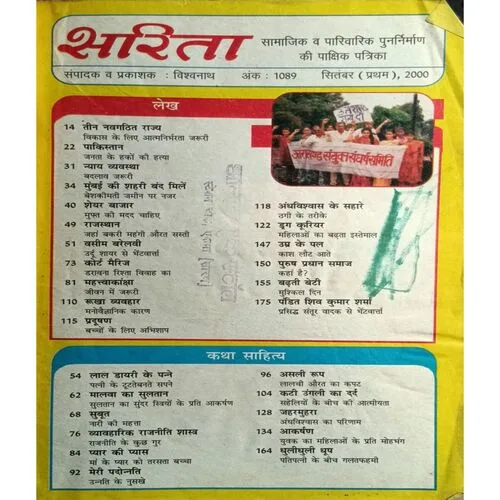 सरिता
सामाजिक व पारिवारिक पुनर्निर्माण
की पाक्षिक पत्रिका
संपादक व प्रकाशक : विश्वनाथ अंक : 1089 सितंबर ( प्रथम ), 2000
लेख
14 तीन नवगठित राज्य
विकास के लिए आत्मनिर्भरता जरूरी
22 पाकिस्तान
जनता के हकों की हत्या
31 न्याय व्यवस्था
बदलाव जरूरी
34 मुंबई की शहरी बंद मिलें
बेशकीमती जमीन पर नजर
40 शेयर बाजार
मुफ्त की मदद चाहिए
49 राजस्थान
जहां बकरी महंगी औरत सस्ती
51 वसीम बरेलवी
उर्दू शायर से भेंटवार्त्ता
73 कोर्ट मैरिज
डरावना रिश्ता विवाह का
81 महत्त्वाकांक्षा
जीवन में जरूरी
110 रूखा व्यवहार
मनोवैज्ञानिक कारण
115 प्रदूषण
बच्चों के लिए अभिशाप
उत्तराखण्ड संयुक्त संघर्ष समिति
118 अंधविश्वास के सहारे
ठगी के तरीके
122 ड्रग कूरियर
महिलाओं का बढ़ता इस्तेमाल
147 उम्र के पल
काश लौट आते
150 पुरुष प्रधान समाज
कहां है?
155 बढ़ती बेटी
मुश्किल दिन
175 पंडित शिव कुमार शर्मा
प्रसिद्ध संतूर वादक से भेंटवार्त्ता
कथा साहित्य
54 लाल डायरी के पन्ने
पत्नी के टूटतेबनते सपने
62 मालवा का सुलतान
सुलतान का सुंदर स्त्रियों के प्रति आकर्षण
68 सुबूत
नारी की महत्ता
76 व्यावहारिक राजनीति शास्त्र
राजनीति के कुछ गुर
84 प्यार की प्यास
मां के प्यार को तरसता बच्चा
92 मेरी पदोन्नति
उन्नति के नुसखे
96 असली रूप
लालची औरत का कपट
104 कटी उंगली का दर्द
सहेलियों के बीच की आत्मीयता
128 जहरमुहरा
अंधविश्वास का परिणाम
134 आकर्षण
युवक का महिलाओं के प्रति मोहभंग
164 धुलीधुली धूप
पतिपत्नी के बीच गलतफहमी